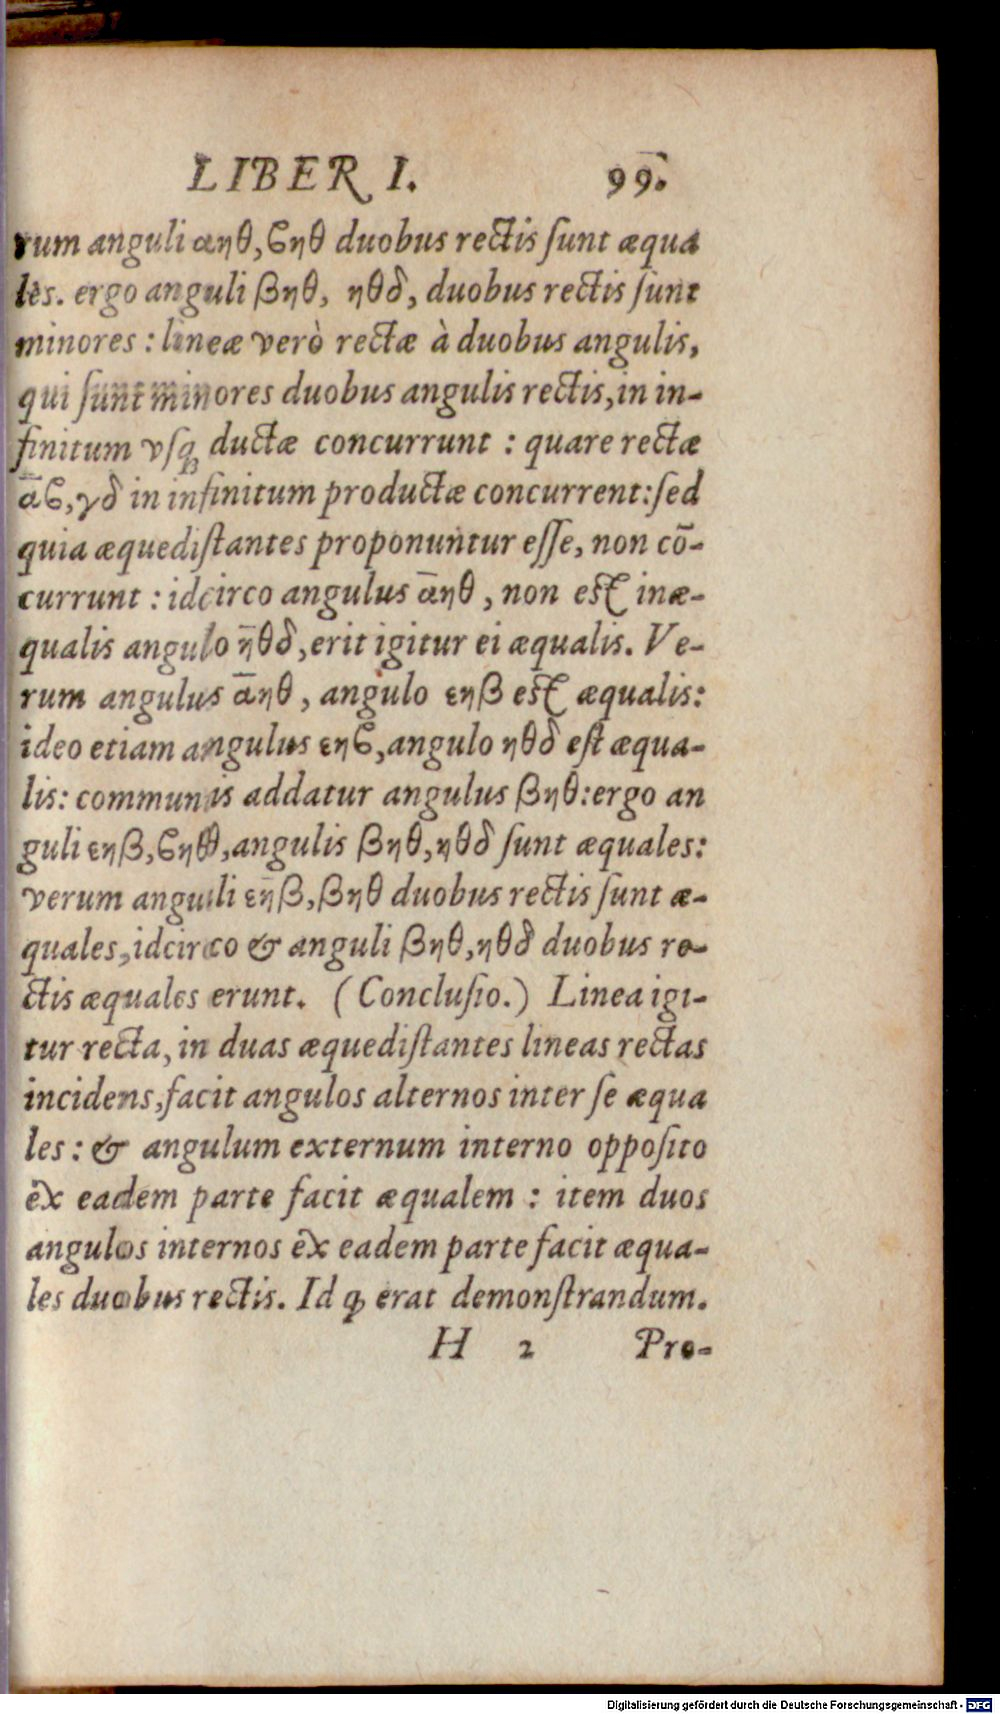 LIBER I. 99.
rum anguli αηθ, ϐηθ duobus rectis ſunt æqua
les. ergo anguli βηθ, ηθδ, duobus rectis ſunt
minores : lineæ verò rectæ à duobus angulis,
qui ſunt minores duobus angulis rectis, in in-
finitum vſq; ductæ concurrunt : quare rectæ
α̅ϐ, γδ in infinitum productæ concurrent: ſed
quia æquediſtantes proponuntur eſſe, non cō-
currunt : idcirco angulus α̅ηθ, non est inæ-
qualis angulo η̅θδ, erit igitur ei æqualis. Ve-
rum angulus α̅ηθ, angulo εηβ est æqualis:
ideo etiam angulus εηϐ, angulo ηθδ eſt æqua-
lis: communis addatur angulus βηθ: ergo an
guli εηβ, ϐηθ, angulis βηθ, ηθδ ſunt æquales:
verum anguli εη̅β, βηθ duobus rectis ſunt æ-
quales, idcirco & anguli βηθ, ηθδ duobus re-
ctis æquales erunt. (Concluſio.) Linea igi-
tur recta, in duas æquediſtantes lineas rectas
incidens, facit angulos alternos inter ſe æqua
les : & angulum externum interno oppoſito
êx eadem parte facit æqualem : item duos
angulos internos êx eadem parte facit æqua-
les duobus rectis. Id q; erat demonſtrandum.
H 2 Pro-
Digitalisierung gefördert durch die Deutsche Forschungsgemeinschaft - DFG